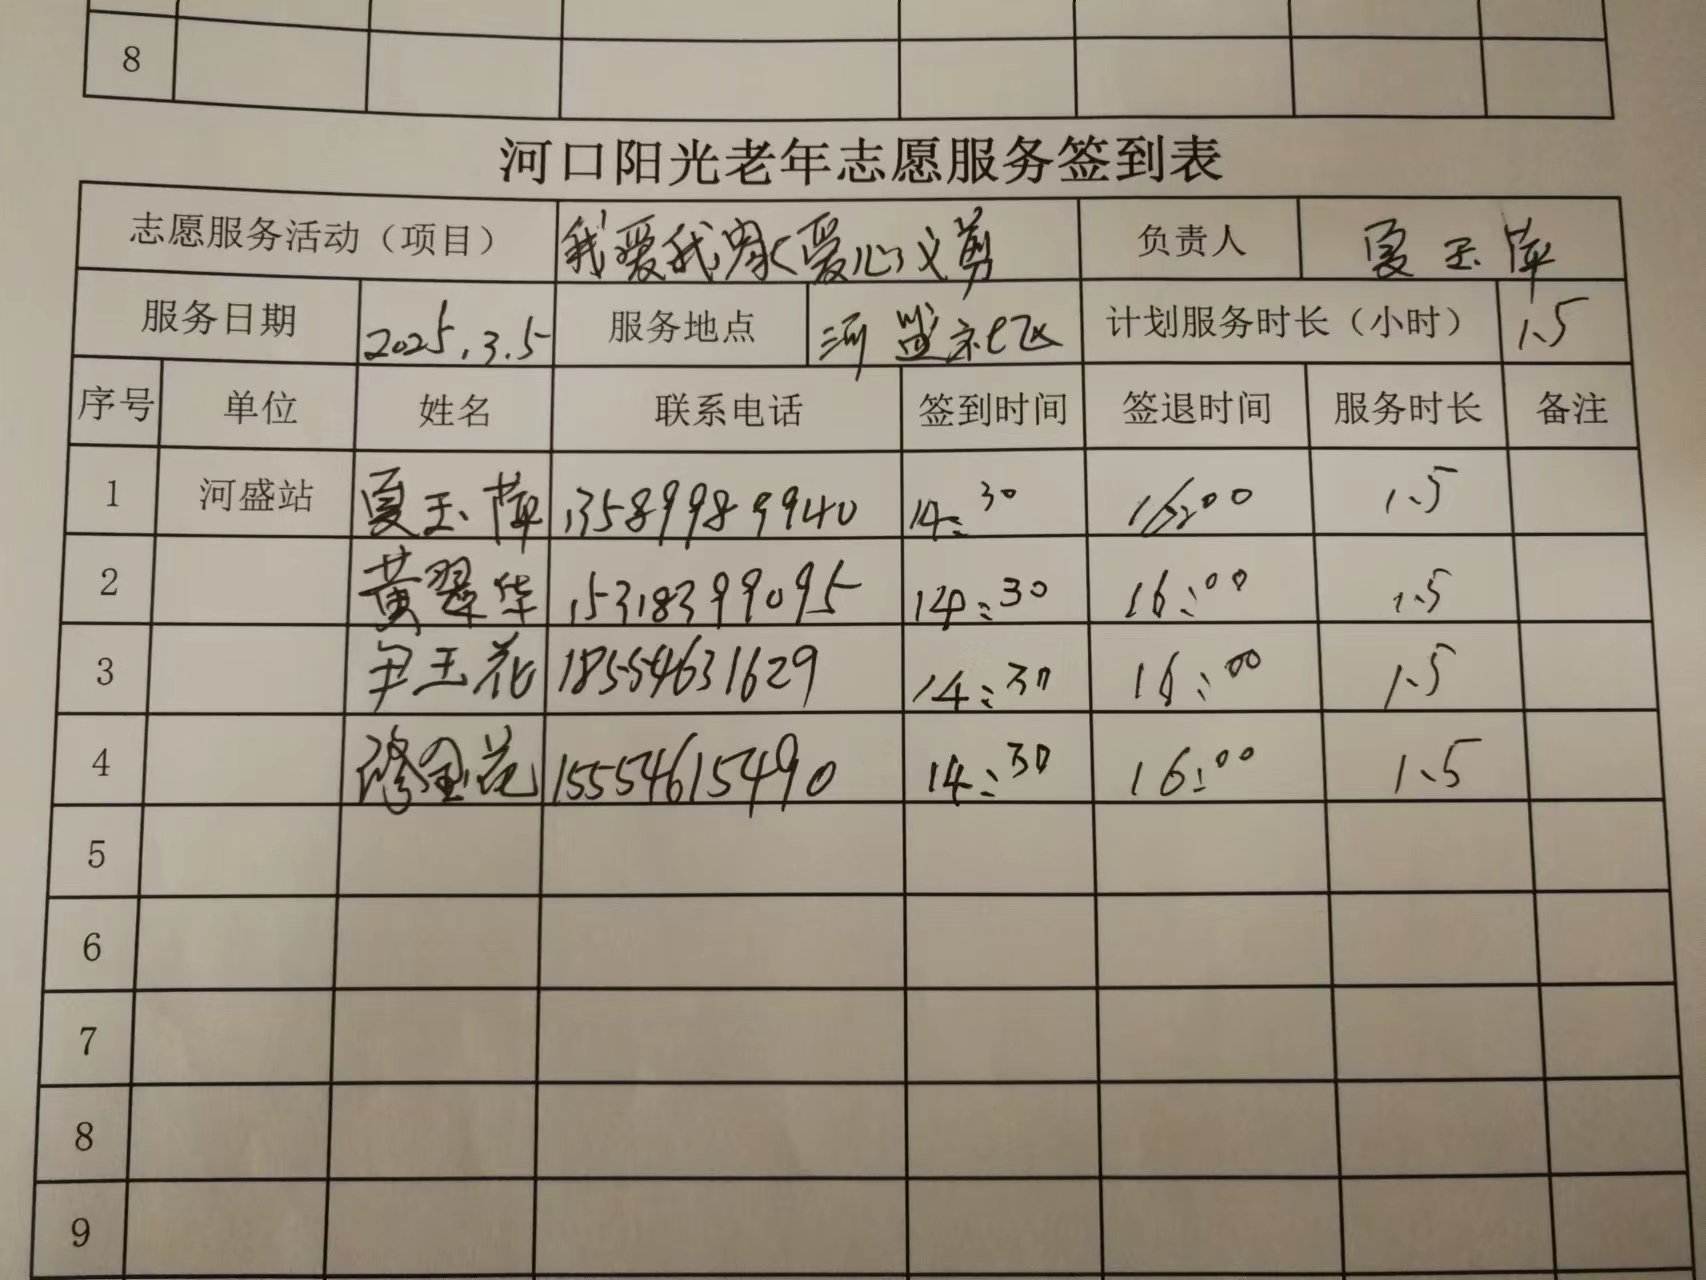 8
河口阳光老年志愿服务签到表
志愿服务活动（项目） 我爱我家（爱心）义剪 负责人 夏玉萍
服务日期 2025.3.5 服务地点 河盛社区 计划服务时长（小时） 1.5
序号 单位 姓名 联系电话 签到时间 签退时间 服务时长 备注
1 河盛站 夏玉萍 13589989940 14:30 16:00 1.5
2 黄翠华 15318399095 14:30 16:00 1.5
3 尹玉花 18554631629 14:30 16:00 1.5
4 花 15554615490 14:30 16:00 1.5
5
6
7
8
9